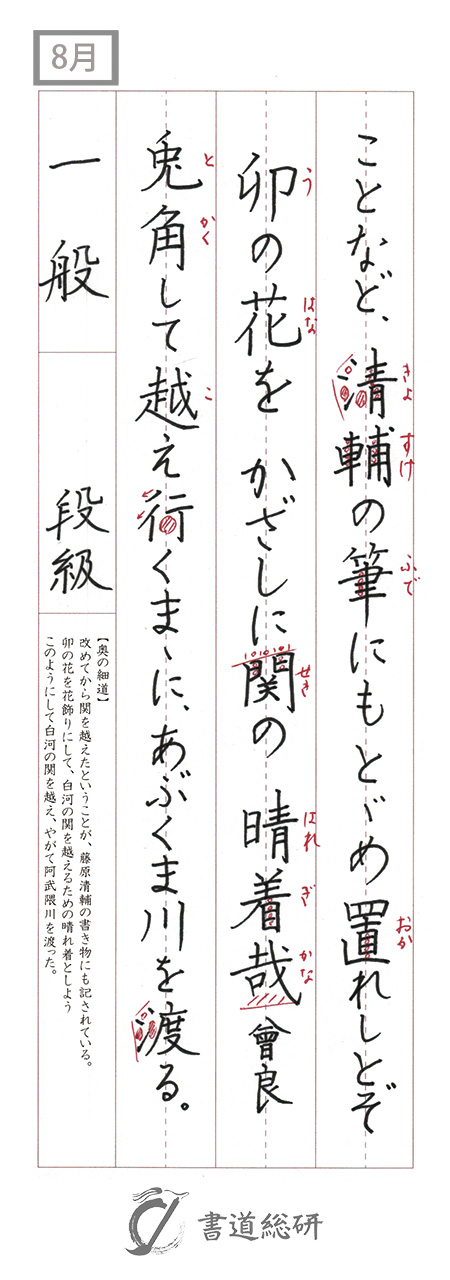 8月
ことなど、清輔の筆にもとゞめ置れしとぞ
きよ すけ ふで おか
卯の花を かざしに関の 晴着哉 曾良
う はな せき はれ ぎ かな
兎角して越え行くまゝに、あぶくま川を渡る。
と かく こ
一般 段級
【奥の細道】
改めてから関を越えたということが、藤原清輔の書き物にも記されている。
卯の花を花飾りにして、白河の関を越えるための晴れ着としよう
このようにして白河の関を越え、やがて阿武隈川を渡った。
書道総研